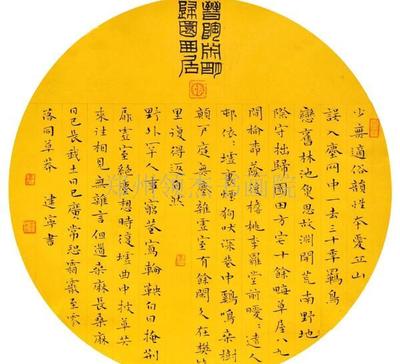 晉陶淵明
歸園田居
少無適俗韻性本愛丘山
誤入塵网中一去三十年羈鳥
戀舊林池魚思故淵開荒南野地
際守拙歸園田方宅十餘畝草屋八九
間榆柳蔭後檐桃李羅堂前曖〻遠人
邨依〻墟裏煙狗吠深巷中鷄鳴桑樹
顛戶庭無塵雜虛室有餘閑久在樊
里復得返自然
野外罕人事窮巷寡輪鞅白日掩荆
扉虛室絕想時復墟曲中披草共
來往相見無雜言但道桑麻長桑麻
日已長我土日已廣常恐霜霰至零
落同草莽 建寧書